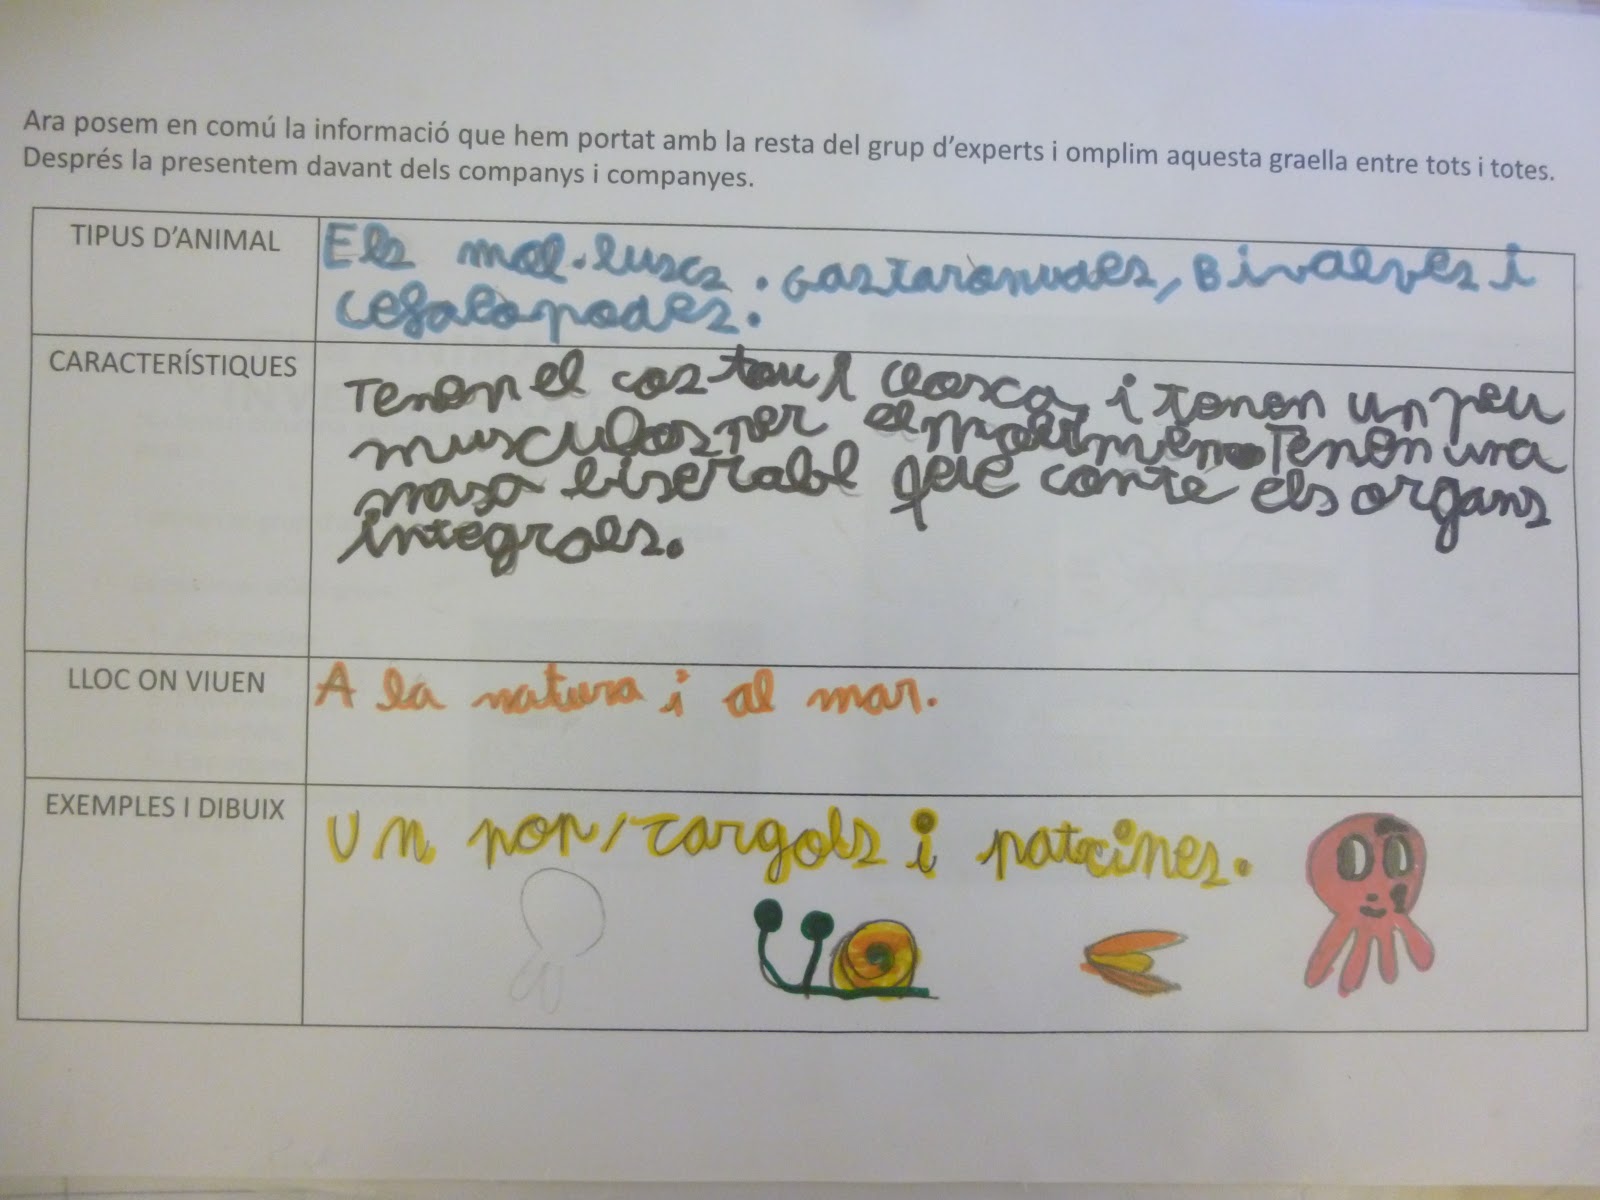 Ara posem en comú la informació que hem portat amb la resta del grup d'experts i omplim aquesta graella entre tots i totes.
Després la presentem davant dels companys i companyes.
TIPUS D'ANIMAL
Els mol·luscs. Gastaronudes, Bivalves i
cefalopodes.
CARACTERÍSTIQUES
Tenen el cos tou i closca i tenen un peu
musculos per el moviment. Tenen una
masa biseral que conte els organs
LLOC ON VIUEN
A la natura i al mar.
EXEMPLES I DIBUIX
Un pop, cargols i patxines.